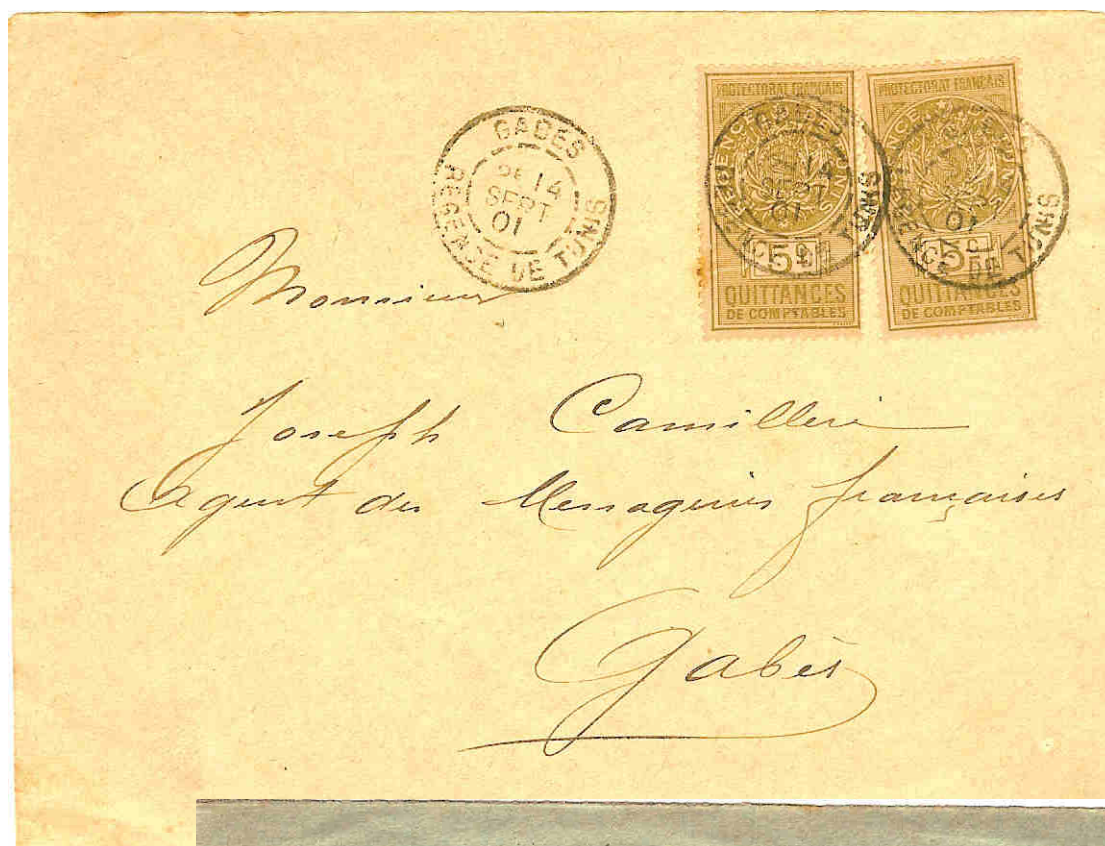 GABES
14
SEPT
01
REGENCE DE TUNIS
PROTECTORAT FRANÇAIS
REGENCE DE TUNIS
5c
QUITTANCES
DE COMPTABLES
GABES
14
SEPT
01
TUNIS
PROTECTORAT FRANÇAIS
REGENCE DE TUNIS
5c
QUITTANCES
DE COMPTABLES
01
REGENCE DE TUNIS
Monsieur
Joseph Camilleri
Agent des Messageries françaises
Gabès